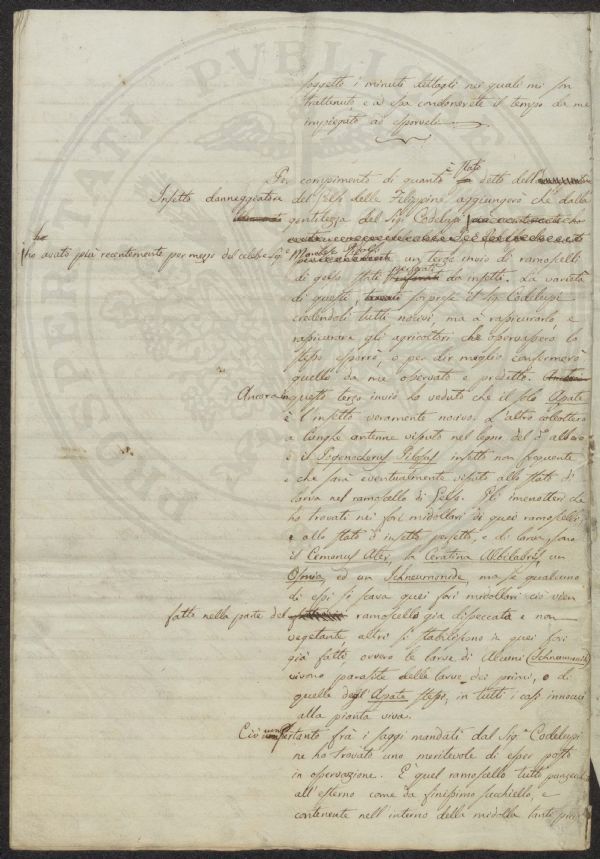 PVBLICAE
soggetto i minuti dettagli nei quali mi son
trattenuto e a essa condonerete il tempo da me
impiegato ad esporveli.
Per compimento di quanto è stato detto dell'
Insetto danneggiatore del Gelso delle Filippine aggiungerò che dalla
gentilezza del Sig. Codelupi
ho avuto più recentemente per mezzo del celebre Sig.
un terzo invio di ramoscelli
di gelso stati da insetti. La varietà
di questi, sorprese il Sig. Codelupi
credendoli tutti nocivi, ma a rassicurarlo, e
rassicurare gli agricoltori che osservassero lo
stesso esporrò, o per dir meglio confermerò
quello da me osservato e predetto.
Ancora in questo terzo invio ho veduto che il solo Apate
è l'insetto veramente nocivo. L'altro coleottero
a lunghe antenne vissuto nel legno del do. albero
è il Pogonocherus Pilosus insetto non frequente
e che sarà eventualmente vissuto allo stato di
larva nel ramoscello di Gelso. Gli imenotteri che
ho trovati nei fori midollari di quei ramoscelli
e allo stato d'insetto perfetto, e di larva sono
il Cemonus Ater, la Ceratina Albilabris, un
Osmia, ed un Ichneumonide, ma se qualcuno
di essi si scava quei fori midollari ciò vien
fatto nella parte del ramoscello già disseccata e non
vegetante, altri si stabiliscono in quei fori
già fatti, ovvero le larve di alcuni (Ichneumonidi)
vivono parasite delle larve dei primi, o di
quelle degli Apate stessi, in tutti i casi innocui
alla pianta viva.
Ciò nonpertanto frà i saggi mandati dal Sig. Codelupi
ne ho trovato uno meritevole di esser posto
in osservazione. È quel ramoscello tutto
all'esterno come da finissimo succhiello, e
contenente nell'interno della midolla tante